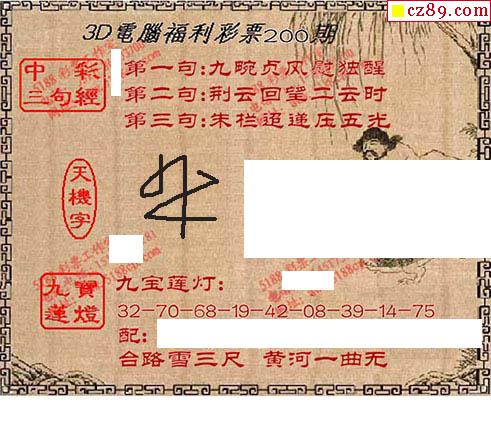 cz89.com
3D電腦福利彩票200期
中彩
三句經
第一句:九畹贞风慰独醒
第二句:荆云回望二云时
第三句:朱栏迢递压五光
天機字
九寶
蓮燈
九宝莲灯:
32-70-68-19-42-08-39-14-75
配:
台路雪三尺 黄河一曲无